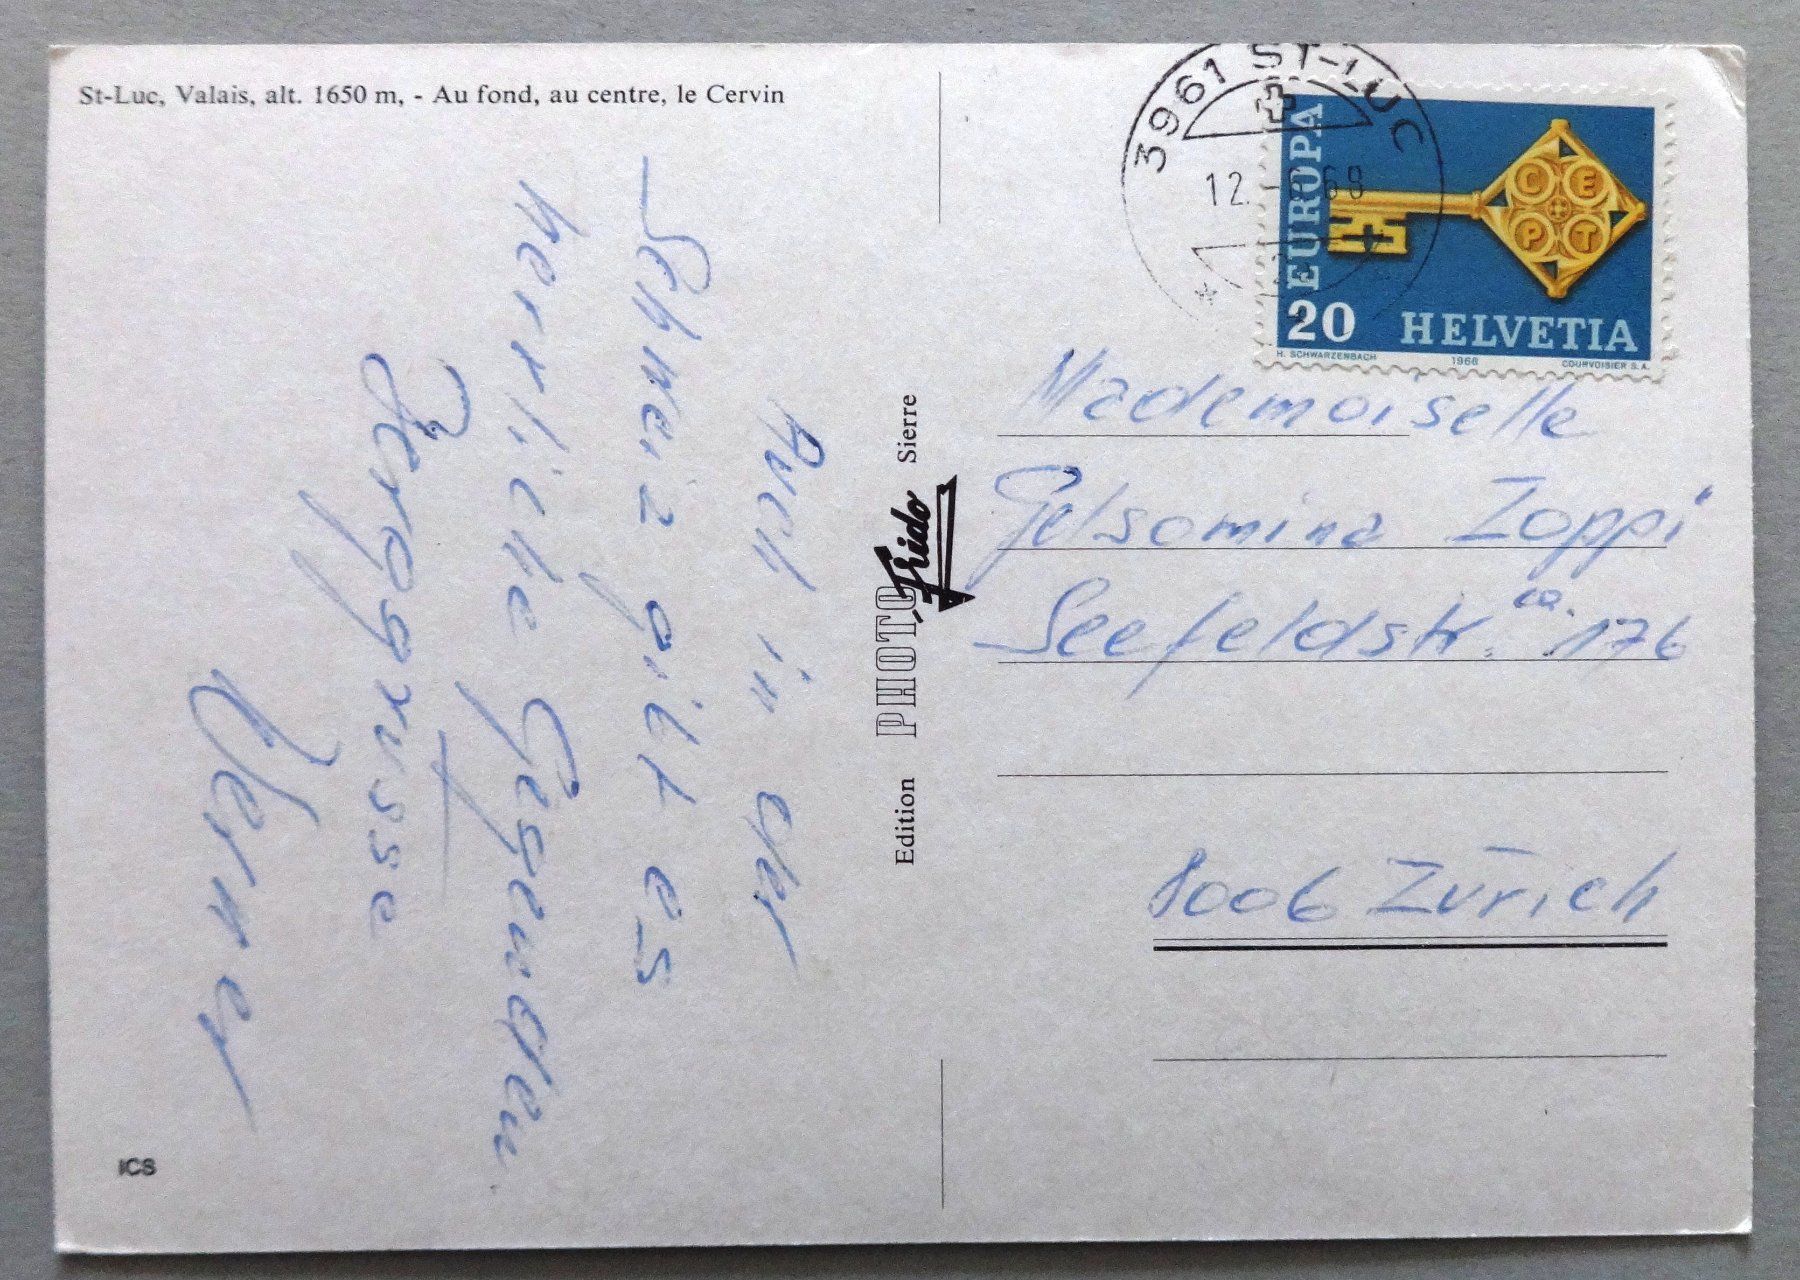 St-Luc, Valais, alt. 1650 m, - Au fond, au centre, le Cervin
Auch in der
Schweiz gibt es
herrliche Gegenden
Berggrusse
Werner
ICS
Edition PHOTO Frido Sierre
3961 ST-LUC
12. 68
EUROPA
CEPT
20 HELVETIA
H. SCHWARZENBACH 1968 COURVOISIER S.A.
Mademoiselle
Gelsomina Zoppi
Seefeldstr. ca. 176
8006 Zürich